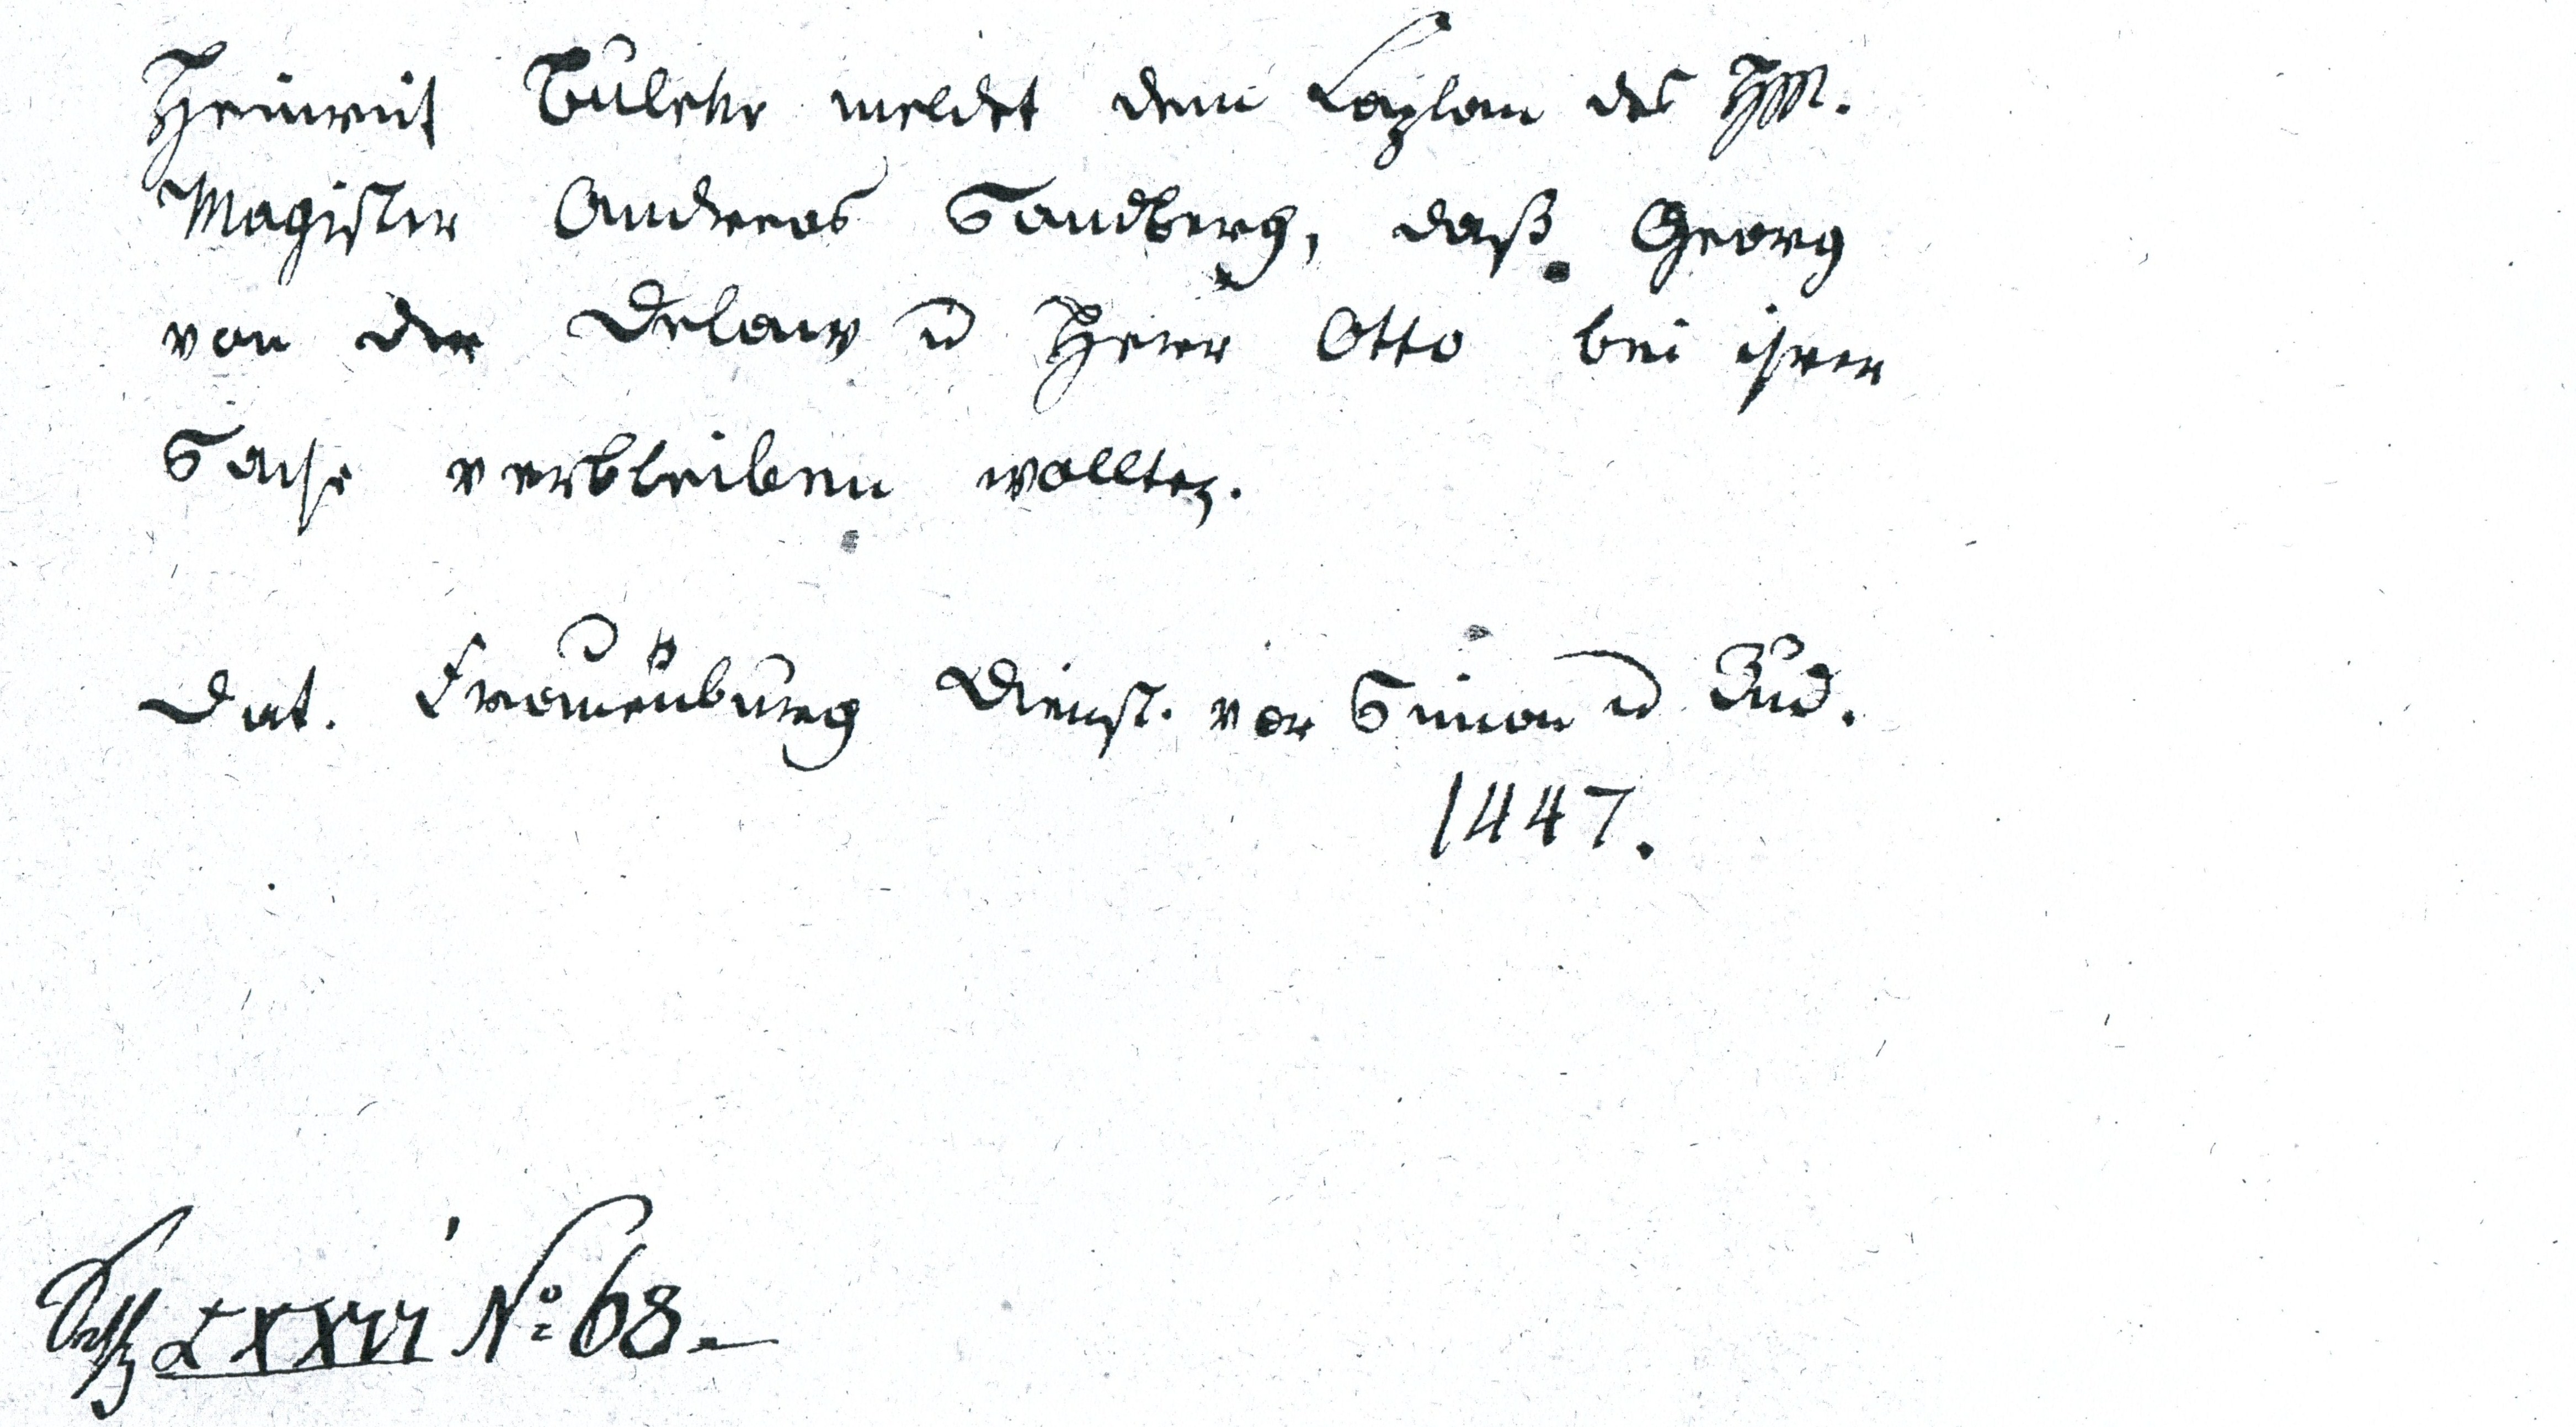 Heinrich Bulehr meldet dem Caplan des HM.
Magister Andreas Sandberg, daß Georg
von der Delaw u Herr Otto bei ihrer
Sache verbleiben wollten.
Dat. Frauenburg Dienst. vor Simon u Jud.
1447.
LXXVI N° 68.